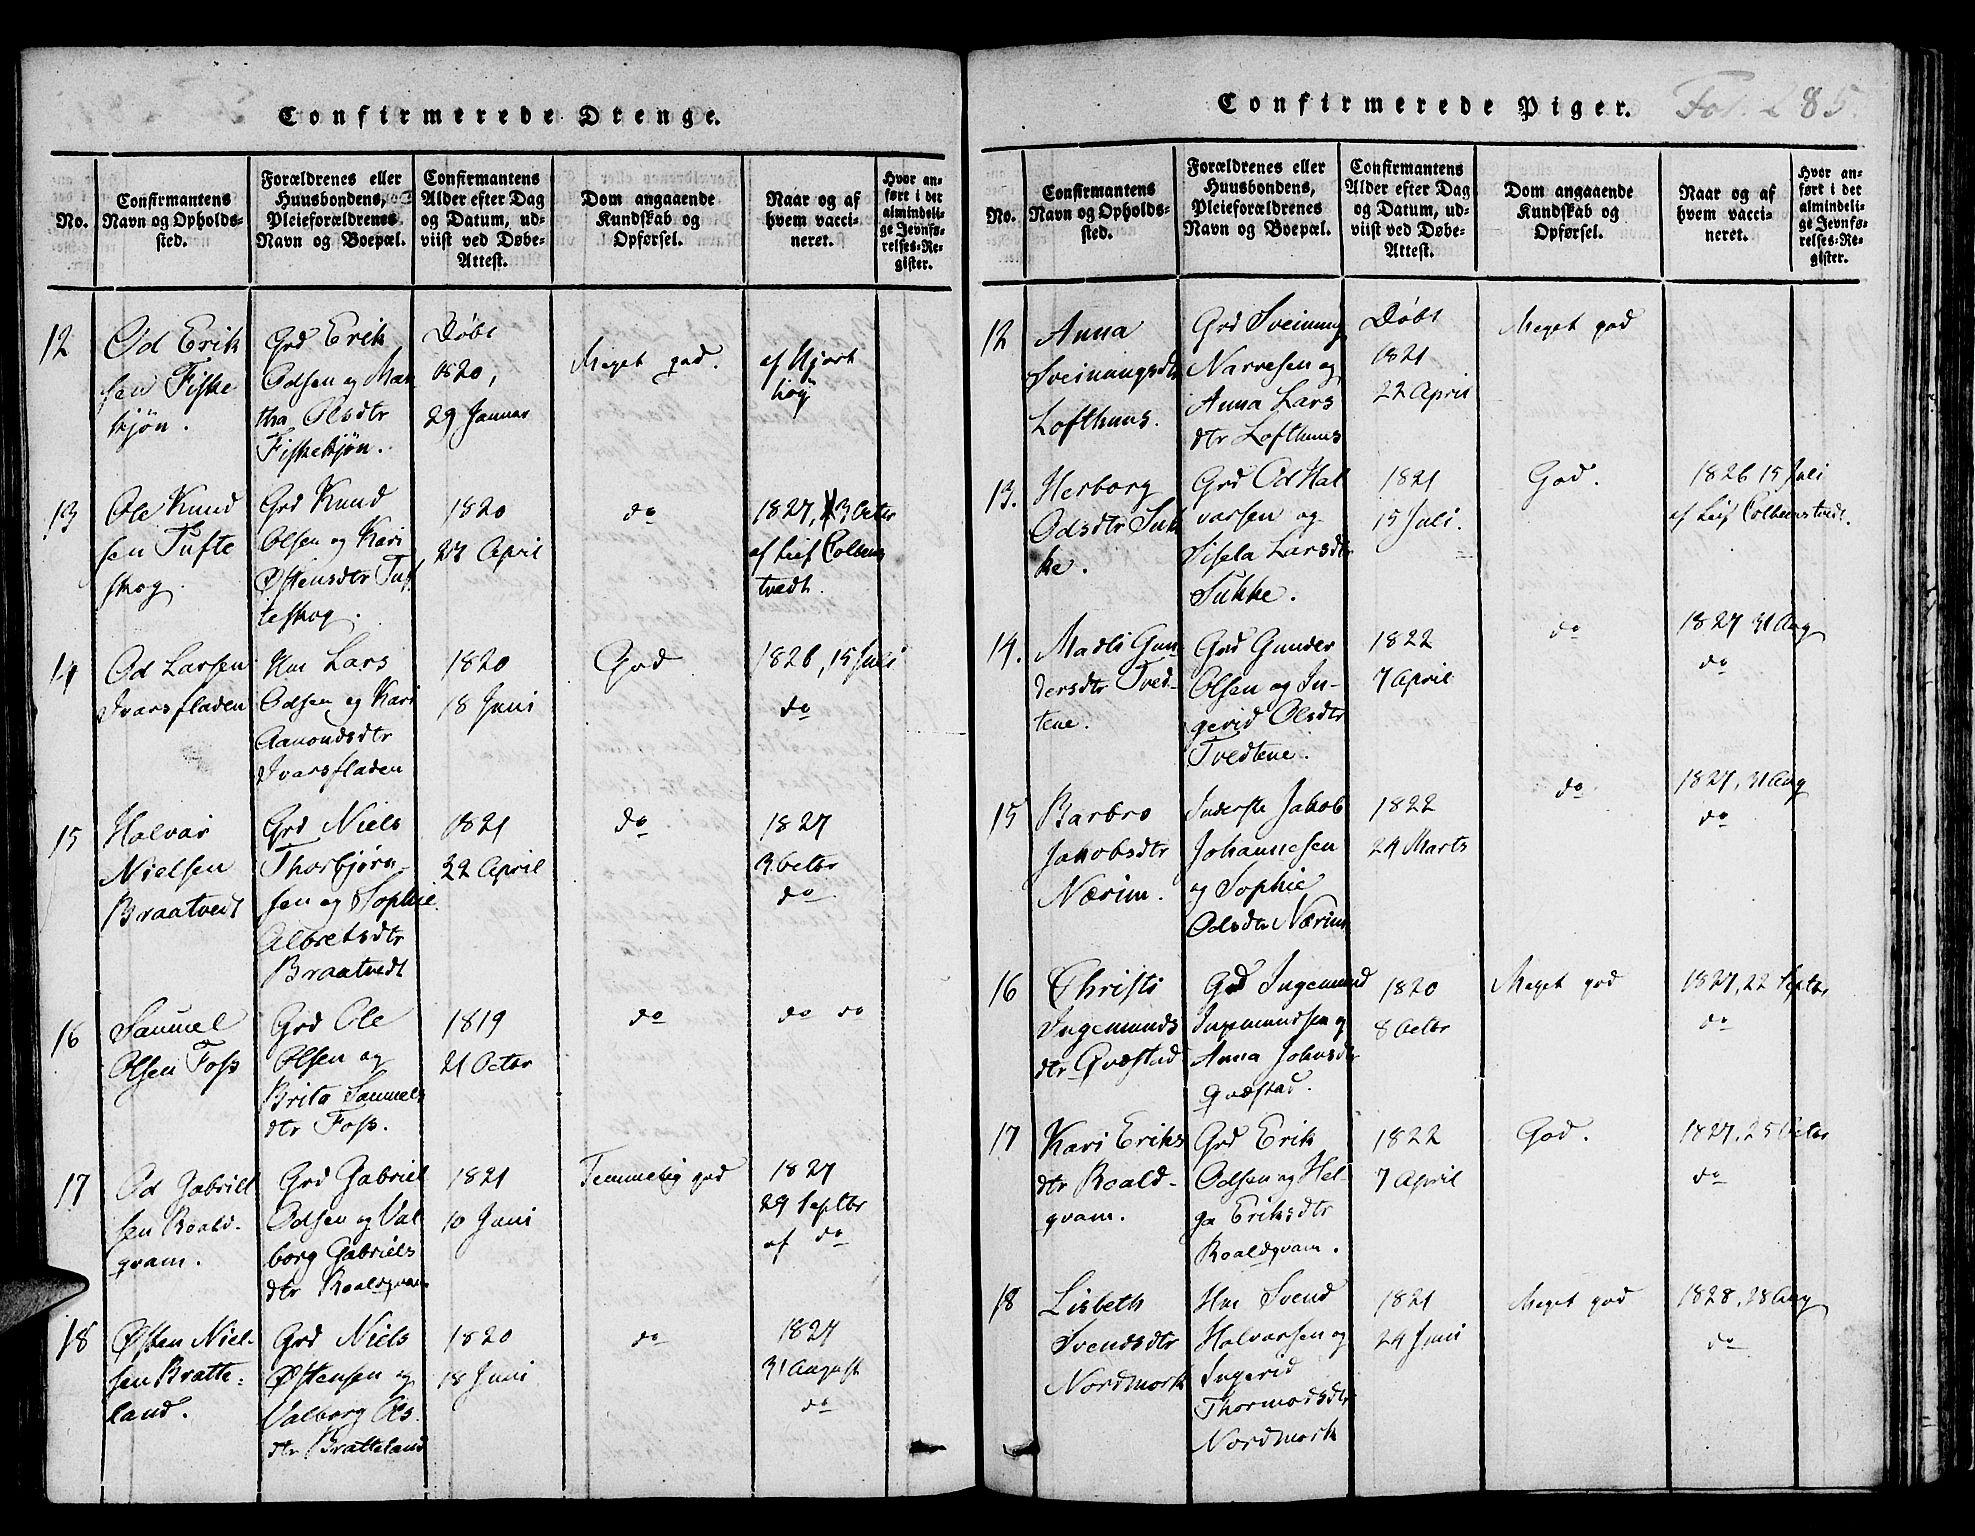 Confirmerede Drenge.
No.
Confirmantens
Navn og Opholds-
sted.
Forældrenes eller
Huusbondens,
Pleieforældrenes
Navn og Boepæl.
Confirmantens
Alder efter Dag
og Datum, ud-
viist ved Døbe-
Attest.
Dom angaaende
Kundskab og
Opførsel.
Naar og af
hvem vacci-
neret.
Hvor an-
ført i det
almindeli-
ge Jevnfø-
relses-Re-
gister.
12
Od Erik
sen Fiske
kjøn.
Grd Erik
Odsen og Mar
tha Olsdtr
Fiskekjøn.
Døbt
1820,
29 Januar
Meget god.
af Hjort
høy
13
Ole Knud
sen Tufte
skog.
Grd Knud
Olsen og Kari
Østensdtr Tuf
teskog.
1820
23 April
do
1827, 3 Octbr
af Leif Colbens
tvedt.
14
Od Larsen
Ivarsfladen
Hm Lars
Odsen og Kari
Aanondsdtr
Ivarsfladen
1820
18 Juni
God
1826, 15 Juli
do
15
Halvar
Nielsen
Braatvedt
Grd Niels
Thorbjørn-
sen og Sophie
Albretsdtr
Braatvedt
1821
22 April
do
1827
3 Octbr
do
16
Samuel
Olsen Foss
Grd Ole
Olsen og
Brita Samuels
dtr Foss.
1819
21 Octbr
do
do do
17
Od Gabriel
sen Roald-
qvam.
Grd Gabriel
Odsen og Val
borg Gabriels
dtr Roaldqvam
1821
10 Juni
Temmelig god
1827
29 Septbr
af do
18
Østen Niel-
sen Bratte-
land.
Grd Niels
Østensen og
Valborg Ols
dtr Bratteland
1820
18 Juni
do
1827
31 August
do
Confirmerede Piger.
Fol. 285.
No.
Confirmantens
Navn og Opholds-
sted.
Forældrenes eller
Huusbondens,
Pleieforældrenes
Navn og Boepæl.
Confirmantens
Alder efter Dag
og Datum, ud-
viist ved Døbe-
Attest.
Dom angaaende
Kundskab og
Opførsel.
Naar og af
hvem vacci-
neret.
Hvor an-
ført i det
almindeli-
ge Jevnfø-
relses-Re-
gister.
12
Anna
Sveinungsdtr
Lofthuus.
Grd Sveinung
Narvesen og
Anna Lars
dtr Lofthuus
Døbt
1821
22 April
Meget god
13.
Herborg
Odsdtr Suk
ke.
Grd Od Hal
varsen og
Sisela Larsdtr
Sukke.
1821
15 Juli.
God.
1826 15 Juli
af Leif Colbenstvedt.
14.
Madli Gun
dersdtr Tved-
tene.
Grd Gunder
Olsen og In-
gerid Olsdtr
Tvedtene.
1822
7 April
do
1827 31 Aug
do
15
Barbro
Jakobsdtr
Nærim.
Inderste Jakob
Johannesen
og Sophie
Odsdtr Nærim
1822
24 Marts
do
1827, 31 Aug
do
16
Christi
Ingemunds
dtr Qvæstad
Grd Ingemund
Ingemundsen og
Anna Johnsdtr
Qvæstad.
1820
8 Octbr
Meget god
1827, 22 Septbr
do
17
Kari Eriks
dtr Roald-
qvam.
Grd Erik
Odsen og Hel-
ga Eriksdtr
Roaldqvam.
1822
7 April
God.
1827, 25 Octbr
do
18
Lisbeth
Svendsdtr
Nordmork
Hm Svend
Halvarsen og
Ingerid
Thormodsdtr
Nordmork
1821
24 Juni
Meget god
1828, 28 Aug
do